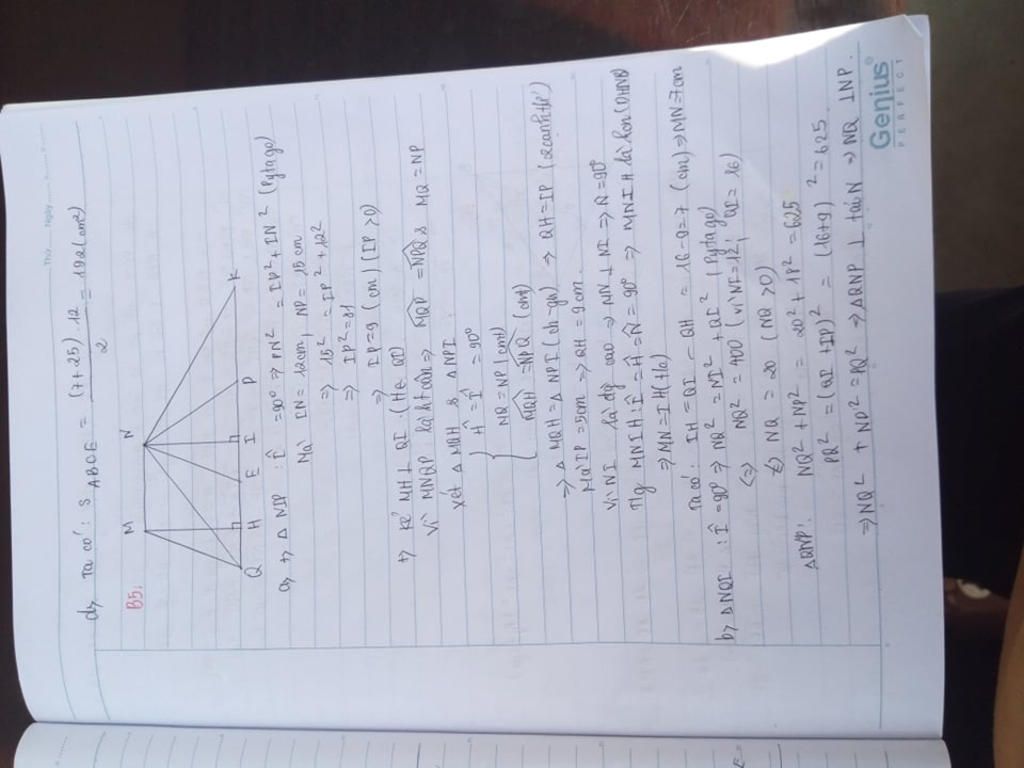 Thứ Ngày
d, Ta có: S ABCE = (7+25).12 / 2 = 192 (cm²)
B5:
M N
Q H E I P K
a, +, Δ NIP : Î = 90° ⇒ PN² = IP² + IN² (Pytago)
Mà IN = 12cm, NP = 15cm
⇒ 15² = IP² + 12²
⇒ IP² = 81
⇒ IP = 9 (cm) (IP > 0)
+, Kẻ MH ⊥ QI (H ∈ QI)
Vì MNQP là ht cân ⇒ MQP = NPQ & MQ = NP
Xét Δ MQH & Δ NPI
Ĥ = Î = 90°
MQ = NP (cmt)
MQH = NPQ (cmt)
⇒ Δ MQH = Δ NPI (ch-gn) ⇒ QH = IP (2 cạnh)
Mà IP = 9cm ⇒ QH = 9cm.
Vì NI là đg cao ⇒ MN ⊥ NI ⇒ N̂ = 90°
Tlg MNIH: Î = Ĥ = N̂ = 90° ⇒ MNIH là hcn (DHNB)
⇒ MN = IH (t/c)
Ta có: IH = QI - QH = 16 - 9 = 7 (cm) ⇒ MN = 7cm
b, Δ NQI : Î = 90° ⇒ NQ² = NI² + QI² (Pytago)
NQ² = 400 (vì NI = 12; QI = 16)
⇔ NQ = 20 (NQ > 0)
ΔQNP: NQ² + NP² = 20² + 15² = 625
PQ² = (QI + IP)² = (16+9)² = 625
⇒ NQ² + NP² = PQ² ⇒ ΔQNP ⊥ tại N ⇒ NQ ⊥ NP.
Genius
PERFECT